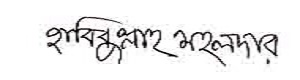 হাবিবুল্লাহ মহলদার